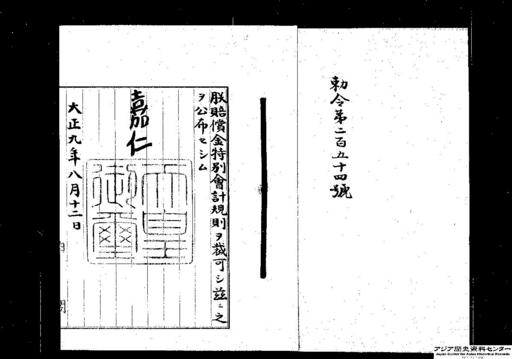 勅令第二百五十四號
朕賠償金特別會計規則ヲ裁可シ茲ニ之
ヲ公布セシム
嘉仁
天皇
御璽
大正九年八月十二日
アジア歴史資料センター
Japan Center for Asian Historical Records